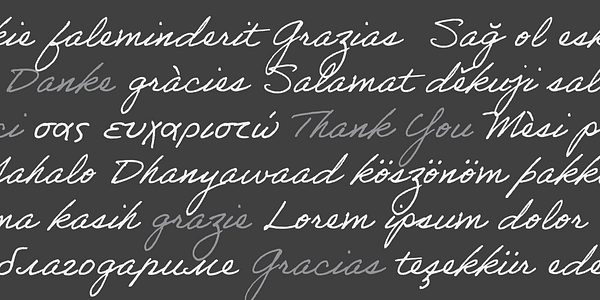 kie faleminderit Grazias Sağ ol esk
Danke gràcies Salamat děkuji sal
ci σας ευχαριστώ Thank You Mèsi p
Mahalo Dhanyawaad köszönöm þakk
na kasih grazie Lorem ipsum dolor
благодариме Gracias teşekkür ede